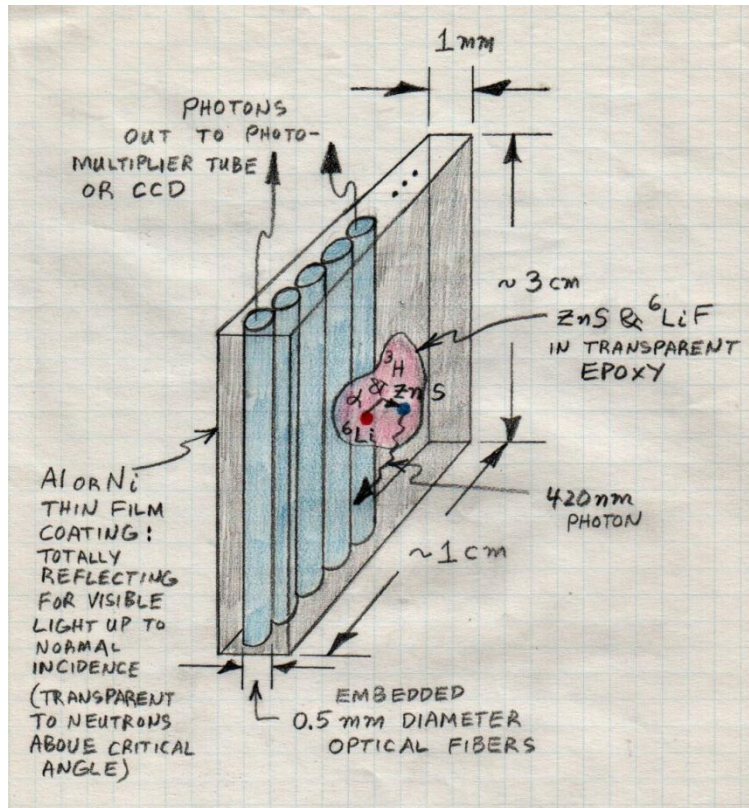 1mm
PHOTONS
OUT TO PHOTO-
MULTIPLIER TUBE
OR CCD
...
~3 cm
ZnS & ⁶LiF
IN TRANSPARENT
EPOXY
³H
α & ZnS
⁶Li
Al OR Ni
THIN FILM
COATING:
TOTALLY
REFLECTING
FOR VISIBLE
LIGHT UP TO
NORMAL
INCIDENCE
(TRANSPARENT
TO NEUTRONS
ABOVE CRITICAL
ANGLE)
420nm
PHOTON
~1 cm
EMBEDDED
0.5 mm DIAMETER
OPTICAL FIBERS